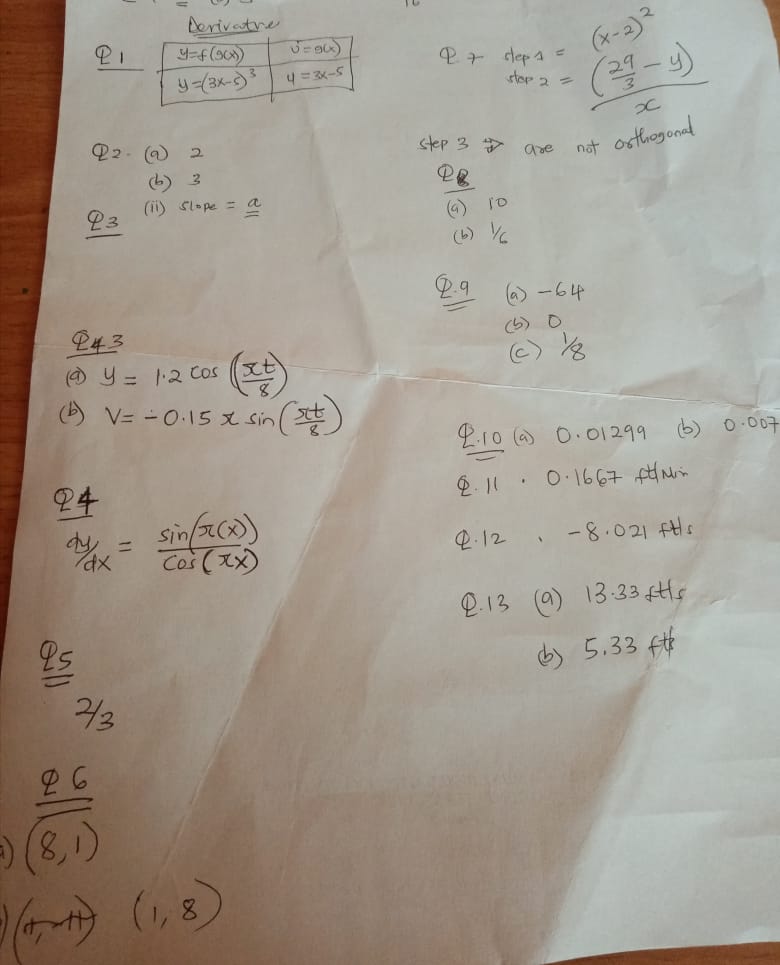 Derivative
Q1
y=f(g(x)) u=g(x)
y=(3x-5)³ u=3x-5
Q2. (a) 2
(b) 3
Q3 (ii) slope = a
Q4 3
(a) y = 1.2 cos (πt/8)
(b) V= -0.15 π sin (πt/8)
Q4
dy/dx = sin(π(x))/cos(πx)
Q5
2/3
Q6
(8,1)
(1,8)
Q.7 step 1 = (x-2)²
step 2 = (29/3 - y)/x
step 3 ⇒ are not orthogonal
Q8
(a) 10
(b) 1/6
Q.9 (a) -64
(b) 0
(c) 1/8
Q.10 (a) 0.01299 (b) 0.007
Q.11 . 0.1667 ft/Min
Q.12 . -8.021 ft/s
Q.13 (a) 13.33 ft/s
(b) 5.33 ft/s